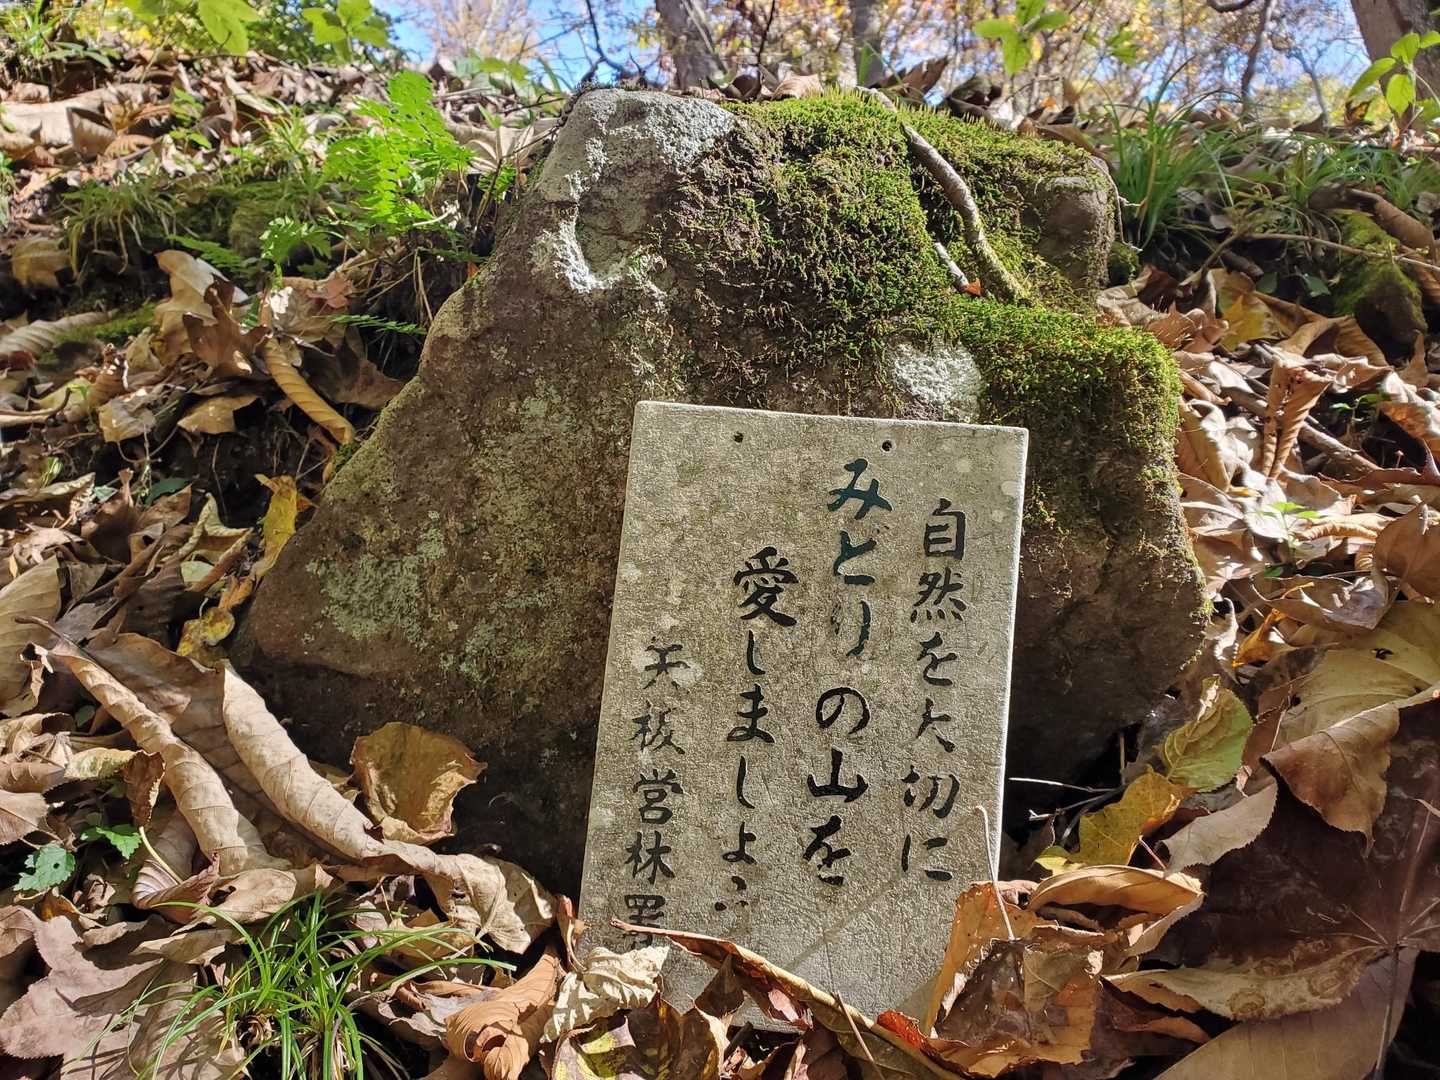 自然を大切に
みどりの山を
愛しましょう
矢板営林署